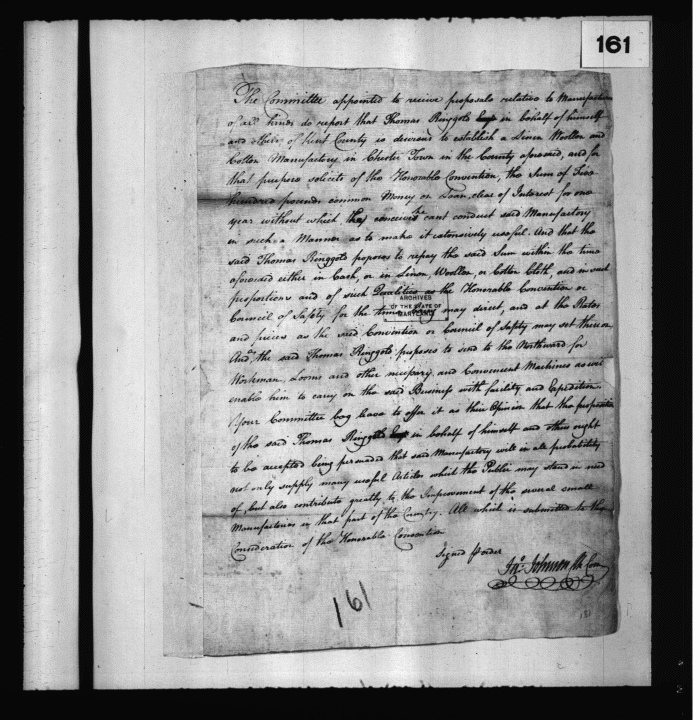 161
The Committee appointed to receive proposals relative to Manufactures
of all kinds do report that Thomas Ringgold Esqr in behalf of himself
and others of Kent County is desirous to establish a Linen Woollen and
Cotton Manufactory in Chester Town in the County aforesaid, and for
that purpose solicits of the Honorable Convention, the Sum of Five
hundred pounds common Money on Loan clear of Interest for one
year without which he conceives he cant conduct said Manufactory
in such a Manner as to make it extensively useful. And that the
said Thomas Ringgold proposes to repay the said Sum within the time
aforesaid either in Cash, or in Linen, Woollen, or Cotton Cloth, and in such
proportions and of such Qualities as the Honorable Convention or
Council of Safety for the time may direct, and at the Rates
and prices as the said Convention or Council of Safety may set thereon
And the said Thomas Ringgold proposes to send to the Northward for
Workmen, Looms and other necessary and Convenient Machines as will
enable him to carry on the said Business with facility and Expedition.
Your Committee beg leave to offer it as their Opinion that the proposition
of the said Thomas Ringgold Esqr in behalf of himself and others ought
to be accepted being persuaded that said Manufactory will in all probability
not only supply many useful Articles which the Public may stand in need
of, but also contribute greatly to the Improvement of the several small
Manufactories in that part of the Country. All which is submitted to the
Consideration of the Honorable Convention
Signed p order
Jno. Johnson Ck Com
ARCHIVES
OF THE STATE OF
MARYLAND
161